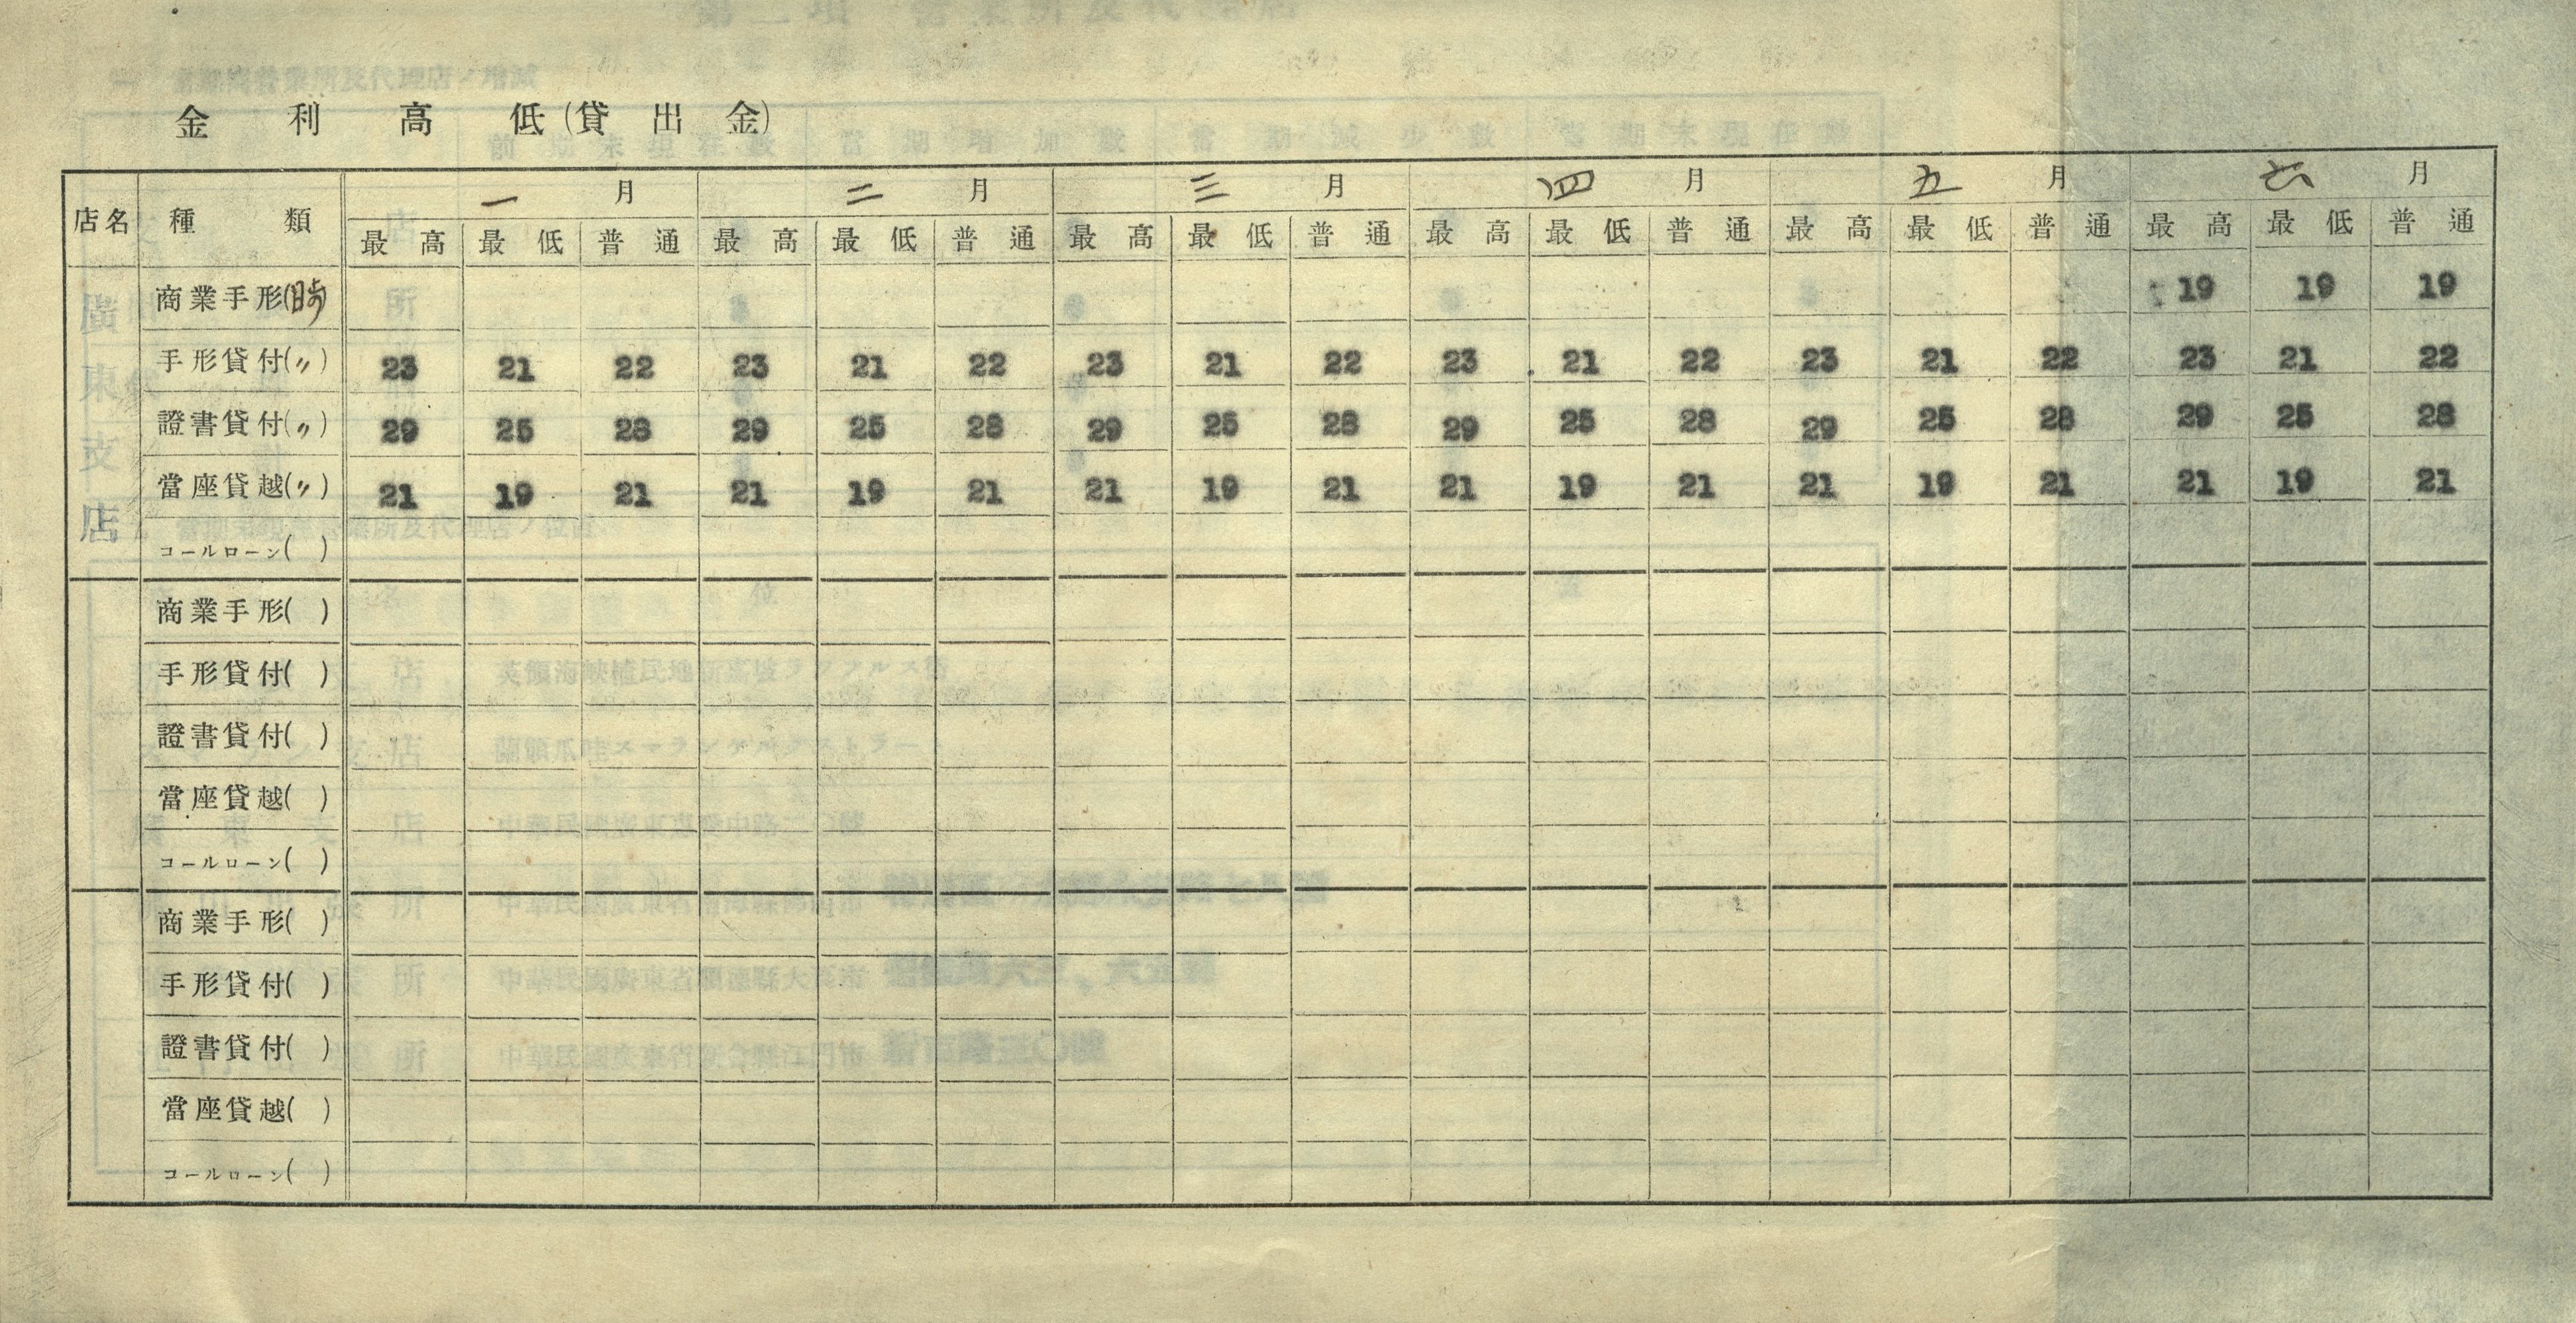 金利高低(貸出金)
店名 種類 一月 二月 三月 四月 五月 六月
最高 最低 普通 最高 最低 普通 最高 最低 普通 最高 最低 普通 最高 最低 普通 最高 最低 普通
廣東支店
商業手形(日歩) 19 19 19
手形貸付(〃) 23 21 22 23 21 22 23 21 22 23 21 22 23 21 22 23 21 22
證書貸付(〃) 29 25 28 29 25 28 29 25 28 29 25 28 29 25 28 29 25 28
當座貸越(〃) 21 19 21 21 19 21 21 19 21 21 19 21 21 19 21 21 19 21
コールローン( )
商業手形( )
手形貸付( )
證書貸付( )
當座貸越( )
コールローン( )
商業手形( )
手形貸付( )
證書貸付( )
當座貸越( )
コールローン( )